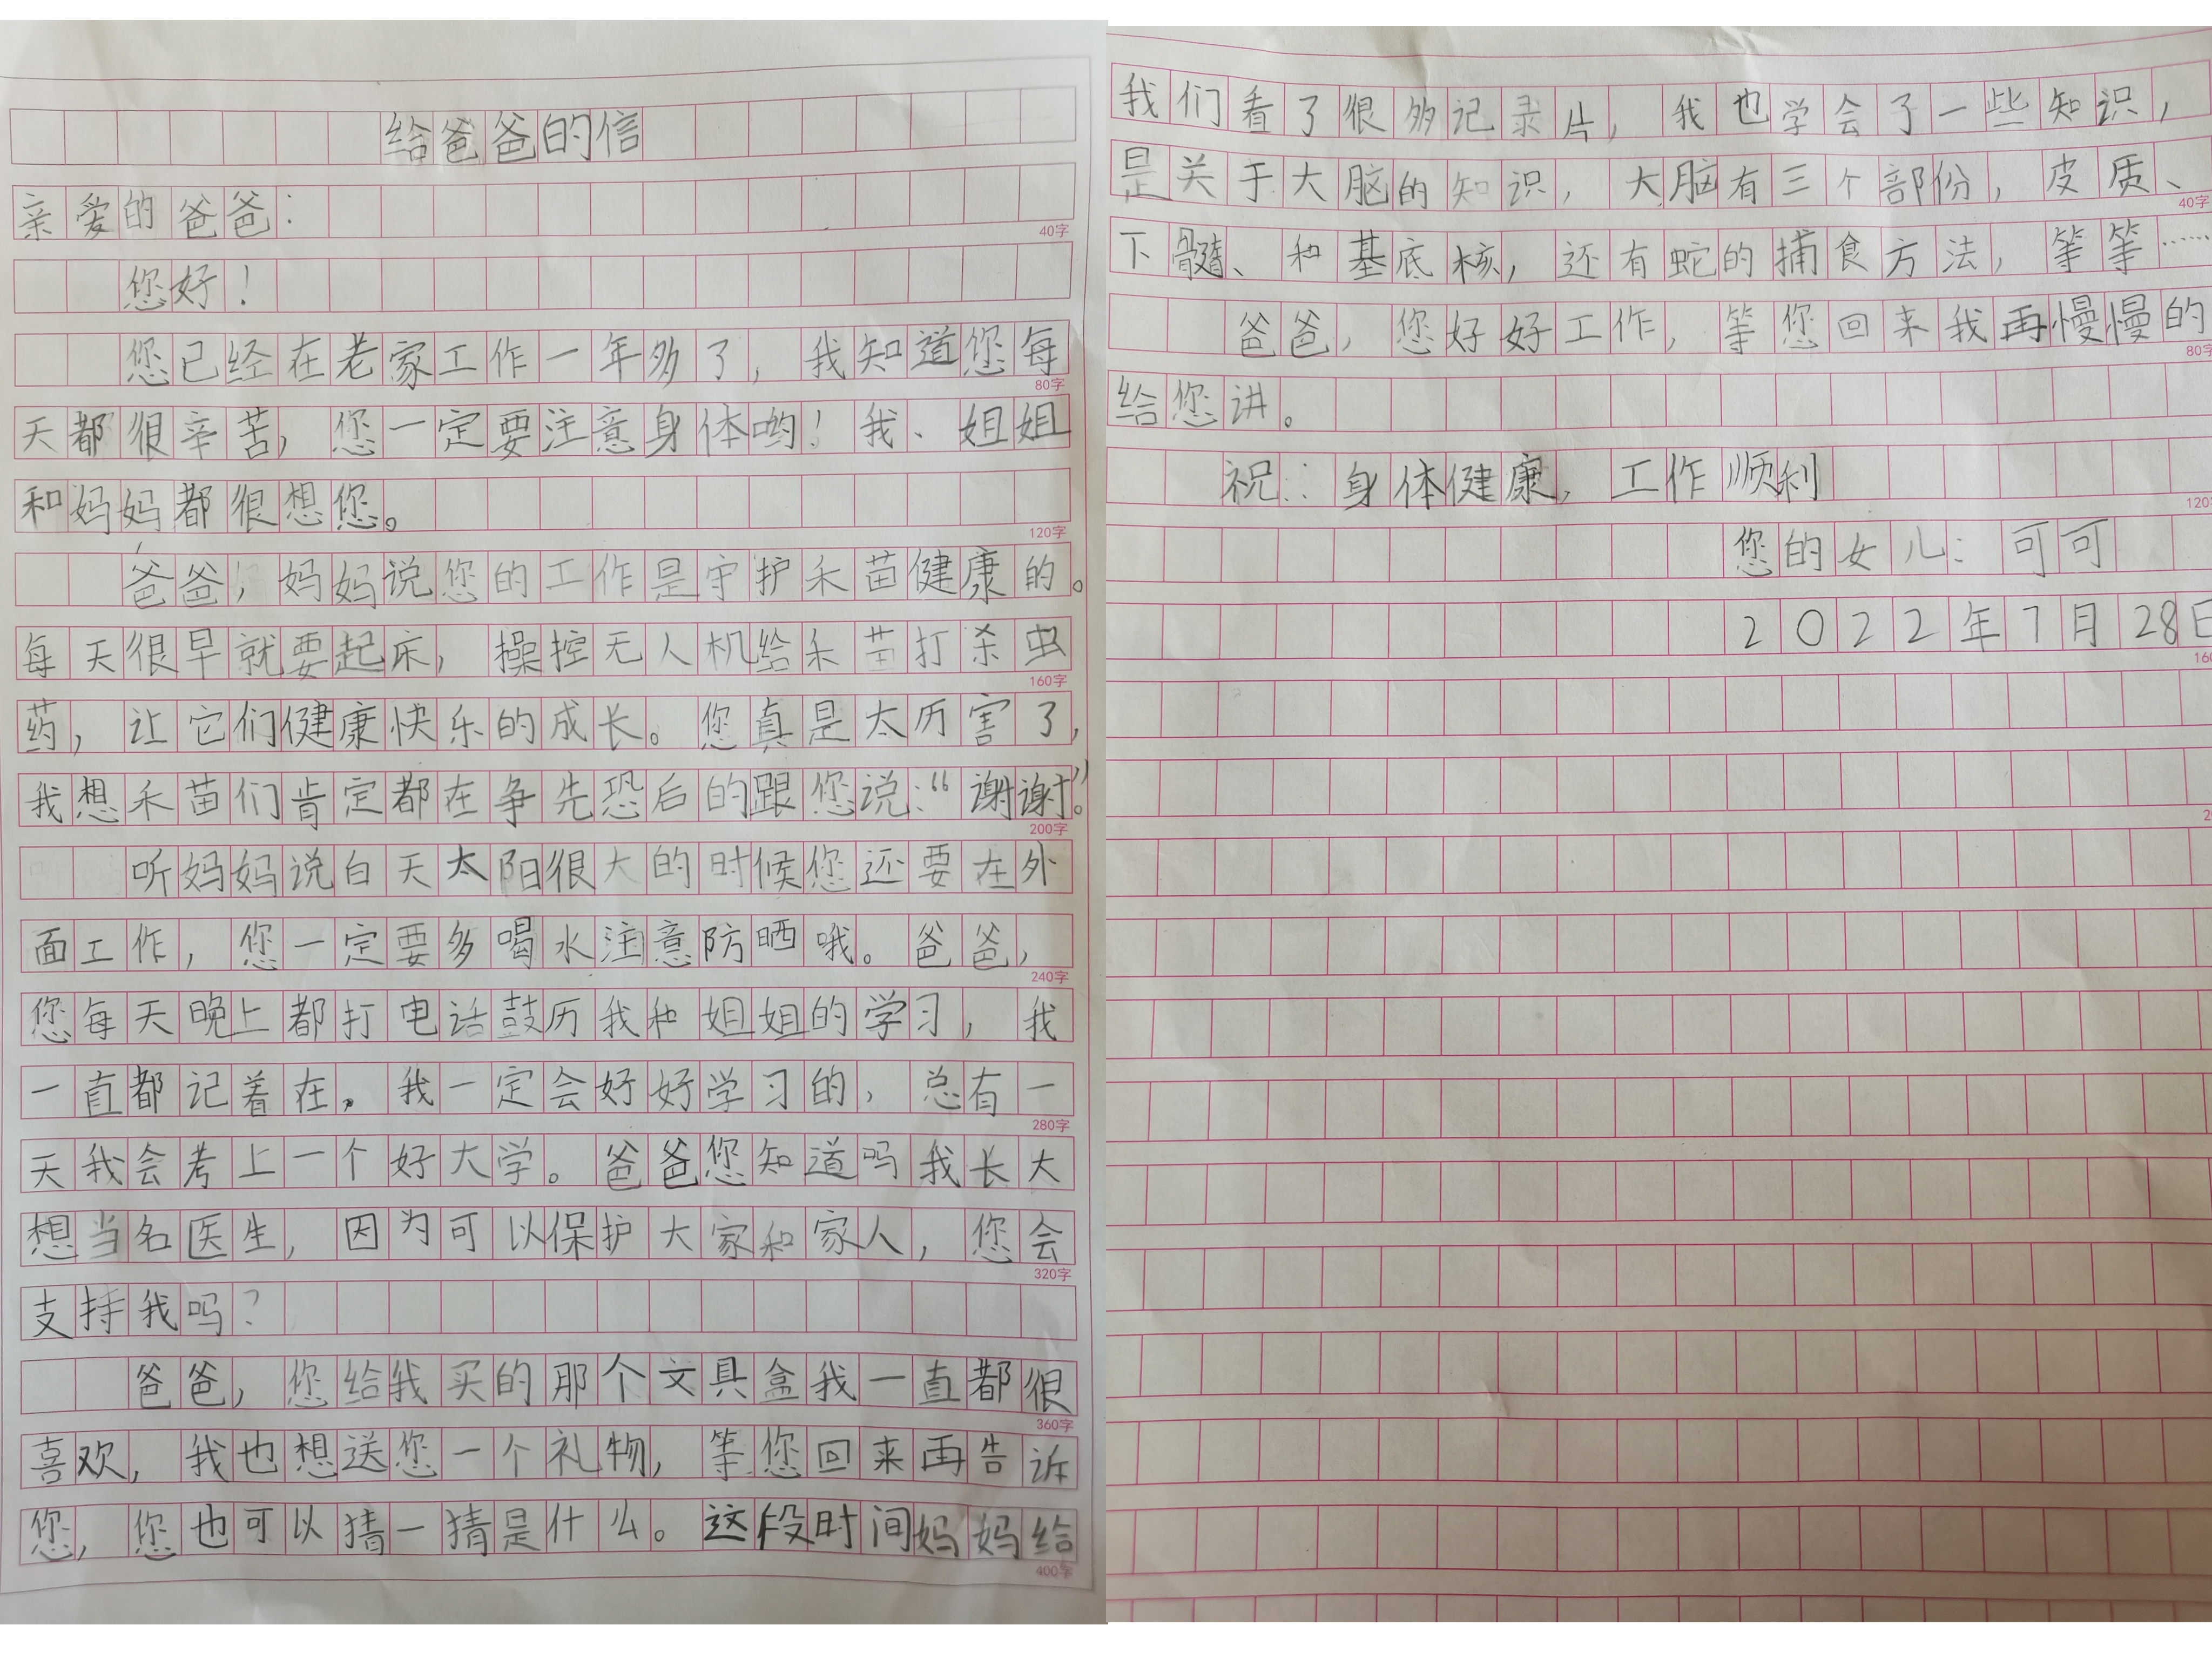 给爸爸的信
亲爱的爸爸：
40字
您好！
您已经在老家工作一年多了，我知道您每
80字
天都很辛苦，您一定要注意身体哟！我、姐姐
和妈妈都很想您。
120字
爸爸，妈妈说您的工作是守护禾苗健康的。
每天很早就要起床，操控无人机给禾苗打杀虫
160字
药，让它们健康快乐的成长。您真是太历害了，
我想禾苗们肯定都在争先恐后的跟您说：“谢谢”。
200字
听妈妈说白天太阳很大的时候您还要在外
面工作，您一定要多喝水注意防晒哦。爸爸，
240字
您每天晚上都打电话鼓历我和姐姐的学习，我
一直都记着在。我一定会好好学习的，总有一
280字
天我会考上一个好大学。爸爸您知道吗我长大
想当名医生，因为可以保护大家和家人，您会
320字
支持我吗？
爸爸，您给我买的那个文具盒我一直都很
360字
喜欢，我也想送您一个礼物，等您回来再告诉
您，您也可以猜一猜是什么。这段时间妈妈给
400字
我们看了很多记录片，我也学会了一些知识，
是关于大脑的知识，大脑有三个部份，皮质、
40字
下髓、和基底核，还有蛇的捕食方法，等等……
爸爸，您好好工作，等您回来我再慢慢的
80字
给您讲。
祝：身体健康，工作顺利
120
您的女儿：可可
2022年7月28日
160
2